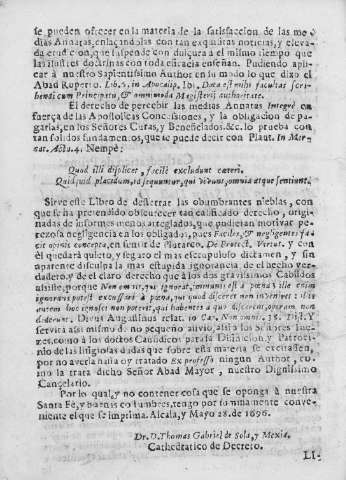 se pueden ofrecer en la materia de la satisfaccion de las medias Annatas, enlaçandolas con tan exquisitas noticias, y elevada erudicion, que suspende con dulçura à el mismo tiempo que
las ilustres doctrinas con toda eficacia enseñan. Pudiendo aplicar à nuestro Sapientissimo Author en su modo lo que dixo el
Abad Ruperto. Lib. 5. in Apocalip. Ibi. Data est mihi facultas scribendi cum Principatu, & omnimoda Magisterij authoritate.
El derecho de percebir las medias Annatas Integrè en
fuerça de las Apostolicas Concessiones, y la obligacion de pagarlas, en los Señores Curas, y Beneficiados. &c. lo prueba con
tan solidos fundamentos, que se puede decir con Plaut. In Mercat. Actu. 4. Nempè:
Quod illi displicet, facilè excludunt cæteri.
Quidquid placidum, id sequuntur, qui vivunt, omnia atque sentiunt.
Sirve este Libro de desterrar las obumbrantes nieblas, con
que se ha pretendido obscurecer tan calificado derecho, originadas de informes menos arreglados, que pudieran motivar perezosa negligencia en los obligados, pues Faciles, & negligentes
opinio concepta, en sentir de Plutarco. De Profect. Virtut. y con
èl quedarà quieto, y seguro el mas escrupuloso dictamen, y sin
aparente disculpa la mas estupida ignorancia de el hecho verdadero, y de el claro derecho que à los dos gravissimos Cabildos
assiste, porque Non omnis, qui ignorat, immunis est à pœna; ille enim
ignorans potest excusari à pœna, qui quod disceret non invenit; illis
autem hoc ignosci non poterit, qui habentes à quo discerent, operam non
dederunt, Divus Augustinus relat. in Cap. Non omni. 38. Dist. Y
servirà assi mismo de no pequeño alivio, assi à los Señores Juezes, como à los doctos Causidicos para la Direccion, y Patrocinio de las litigiosas dudas que sobre esta materia se excitassen,
por no aver hasta oy tratado Ex professo ningun Author, como la trata dicho Señor Abad Mayor, nuestro Dignissimo
Cancelario.
Por lo qual, y no contener cosa que se oponga à nuestra
Santa Fè, y buenas costumbres, tengo por sumamente conveniente el que se imprima. Alcala, y Mayo 28. de 1696.
Dr. D. Thomas Gabriel de Sola, y Mexia.
Cathedratico de Decreto.
LI-